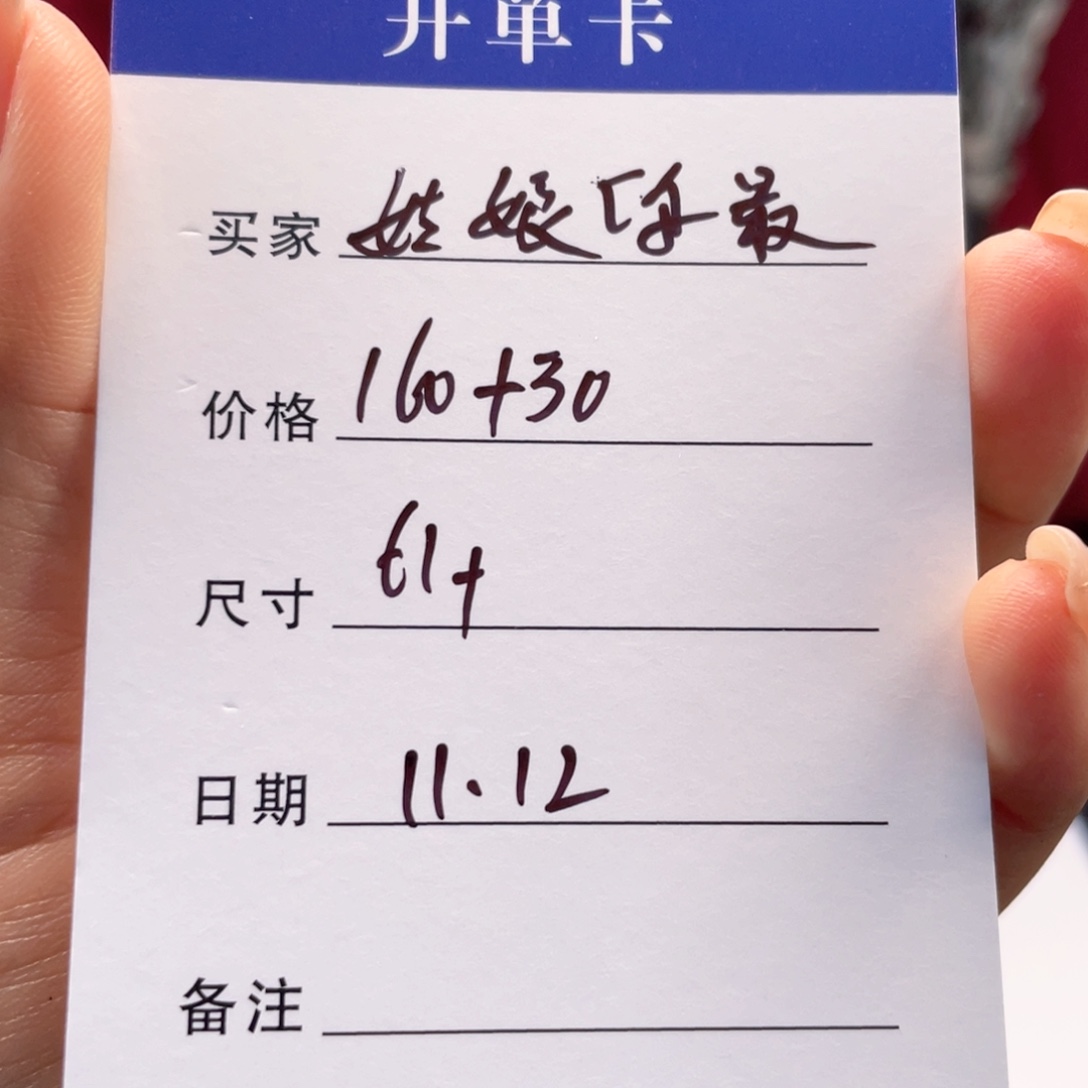 开单卡
买家 姑娘
价格 160+30
尺寸 61+
日期 11.12
备注